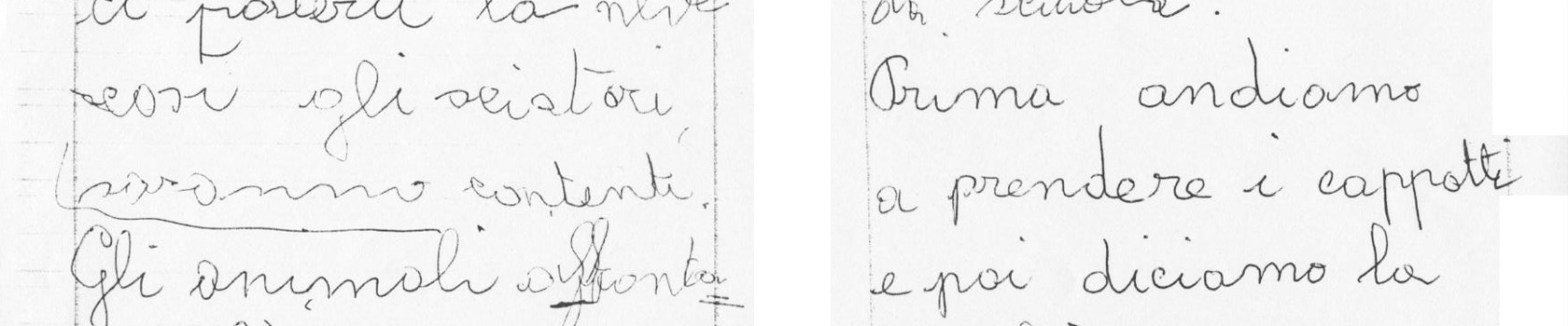 la neve
così gli sciatori
saranno contenti.
Gli animali affronta
Prima andiamo
a prendere i cappotti
e poi diciamo la